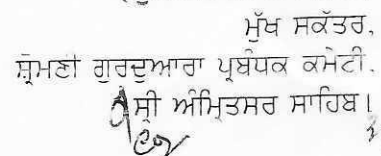 ਮੁੱਖ ਸਕੱਤਰ,
ਸ਼੍ਰੋਮਣੀ ਗੁਰਦੁਆਰਾ ਪ੍ਰਬੰਧਕ ਕਮੇਟੀ.
ਸ੍ਰੀ ਅੰਮ੍ਰਿਤਸਰ ਸਾਹਿਬ।